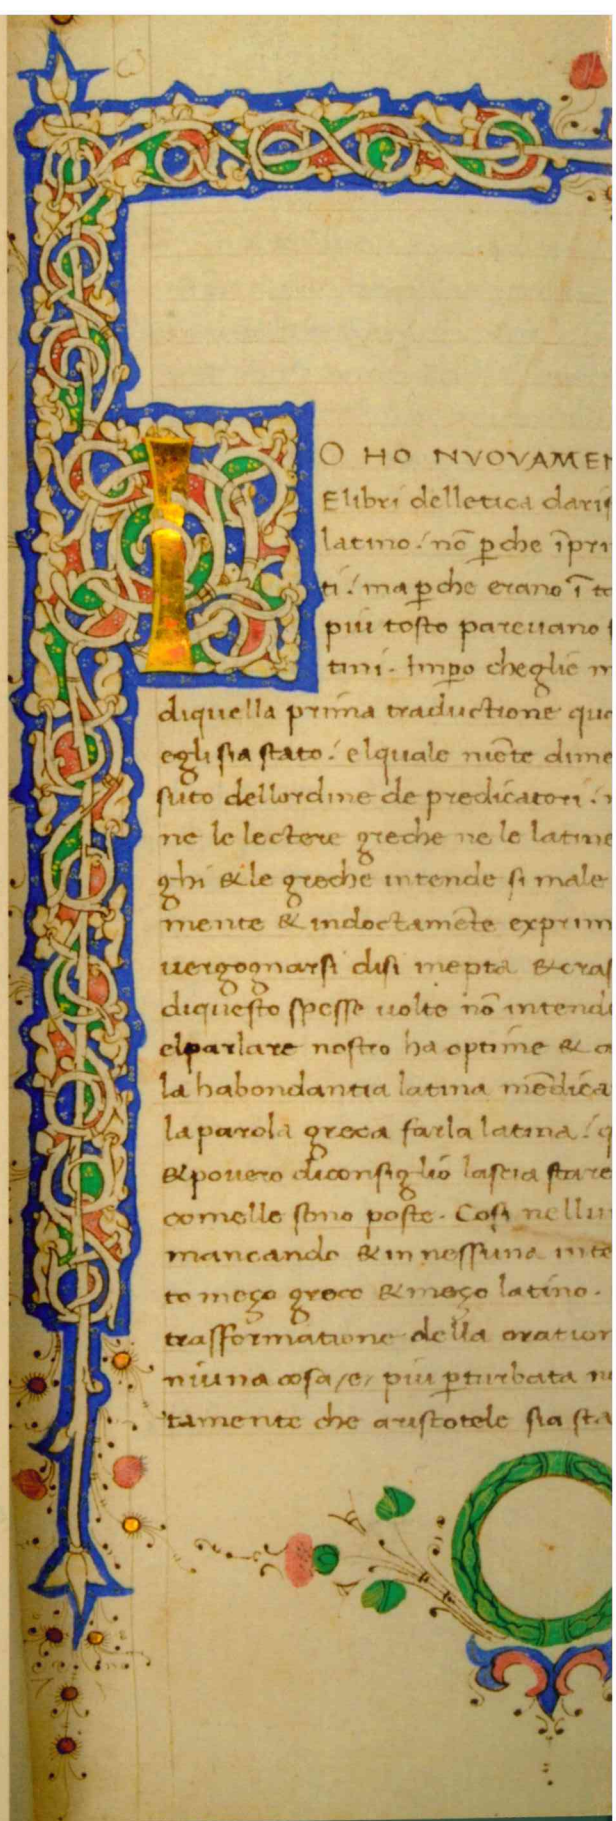 IO HO NVOVAMEN
E libri delletica daris
latino: nō ꝑche īpri
ti: ma ꝑche erano ī to
piu tosto pareuano
tini. Impo cheglie
diquella prima traductione que
egli sia stato: elquale niēte dime
suto dellordine de predicatori:
ne le lectere greche ne le latine
ghi & le greche intende si male
mente & indoctamēte exprim
uergognarsi disi inepta & cras
diquesto spesse uolte nō intende
elparlare nostro ha optime & a
la habondantia latina mēdica
la parola greca farla latina: q
& pouero diconsiglio lascia stare
comelle sono poste. Cosi nellu
mancando & in nessuna inte
to mezo greco & mezo latino.
trasformatione della oration
niuna cosa, e, piu ꝑturbata
tamente che aristotele sia sta